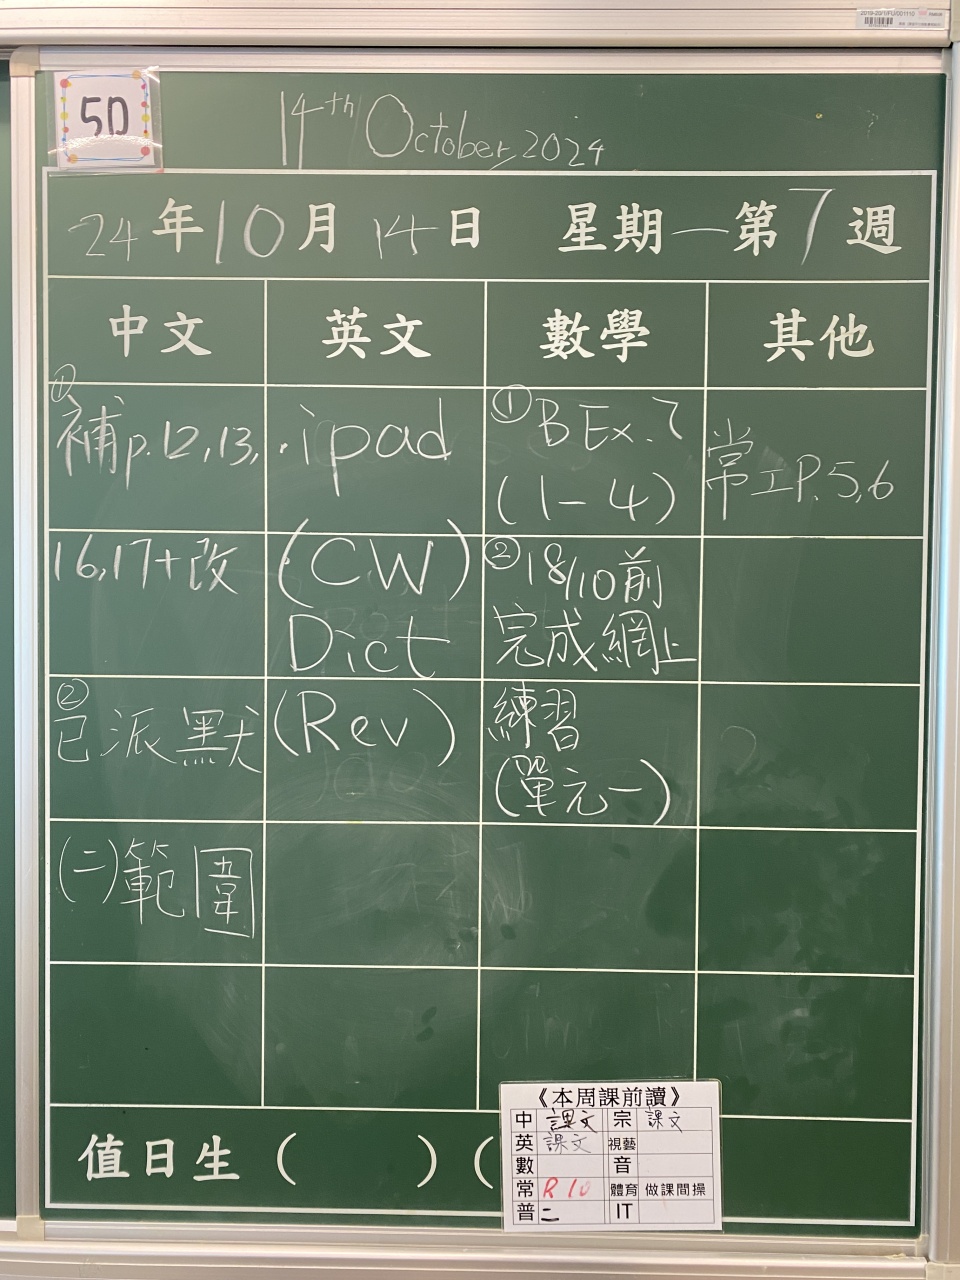 5D
14th October, 2024
24年10月14日 星期一第7週
中文 英文 數學 其他
①補p.12,13,
16,17+改
②已派默
(二)範圍
·ipad
(CW)
Dict
(Rev)
①B Ex.7
(1-4)
②18/10前
完成網上
練習
(單元一)
常工P.5,6
值日生( )(
《本周課前讀》
中 課文 宗 課文
英 課文 視藝
數 音
常 R10 體育 做課間操
普 二 IT